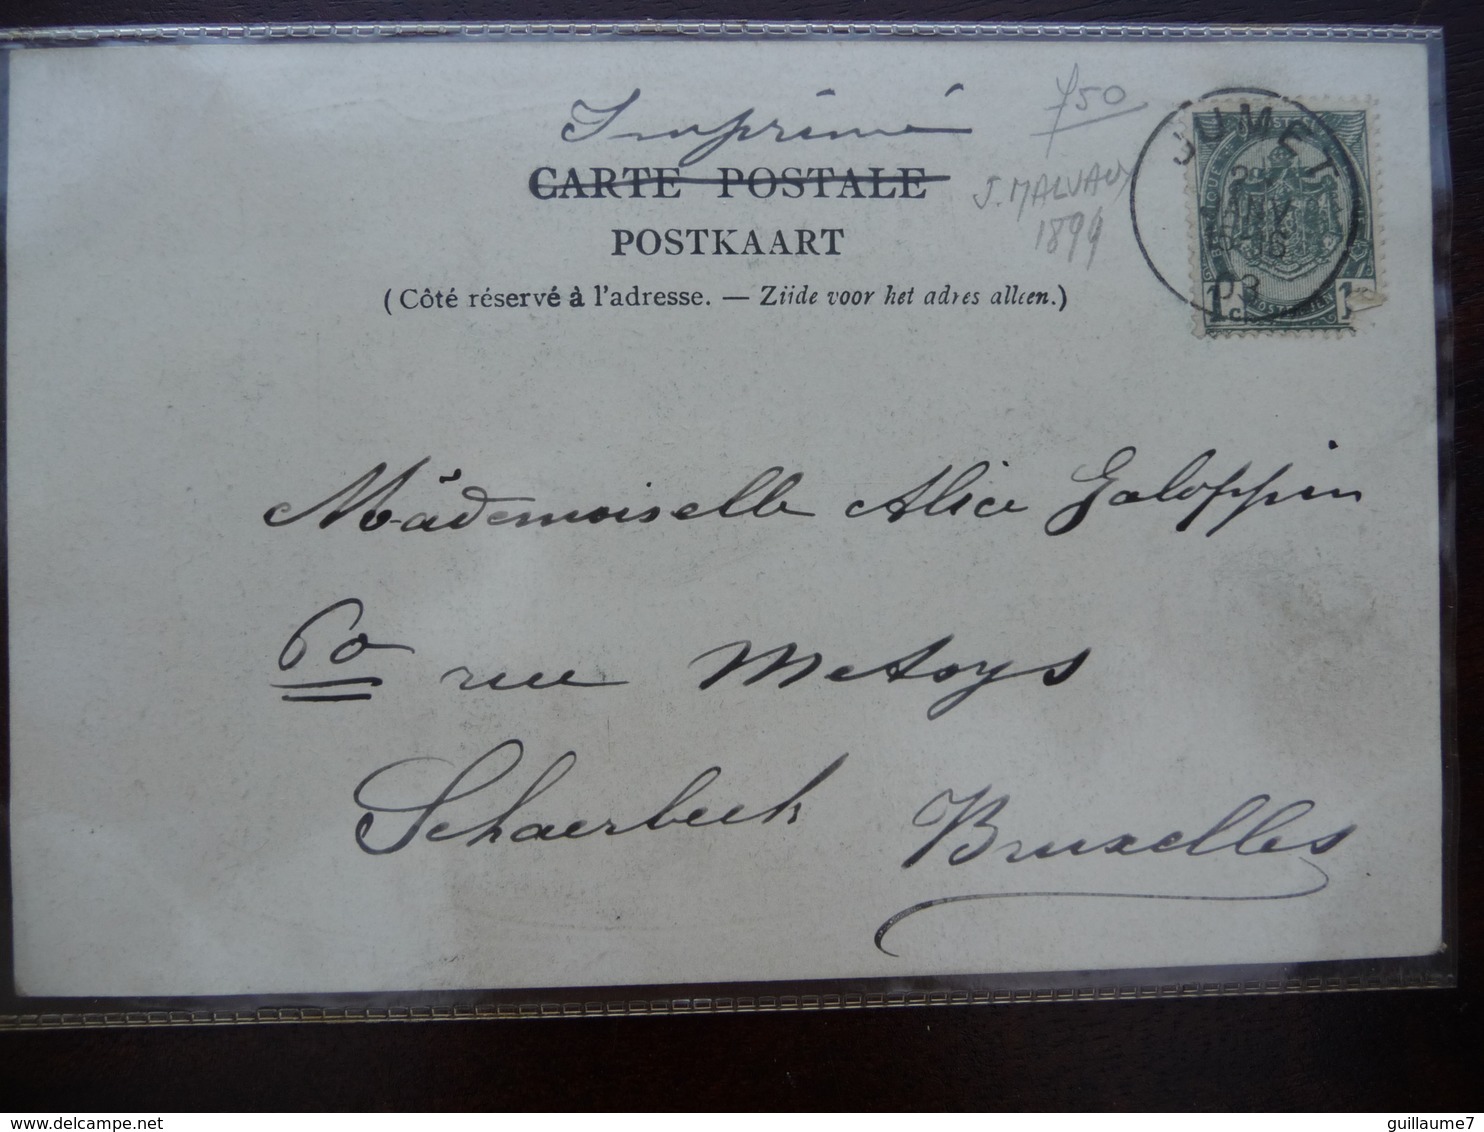 Imprimé
750
CARTE POSTALE
J. MALVAUX
1899
POSTKAART
(Côté réservé à l'adresse. — Ziide voor het adres alleen.)
JUMET
JANV
15-16
03
1c 1
Mademoiselle Alice Galoppin
60 rue Metsys
Schaerbeek Bruxelles
delcampe.net
guillaume7